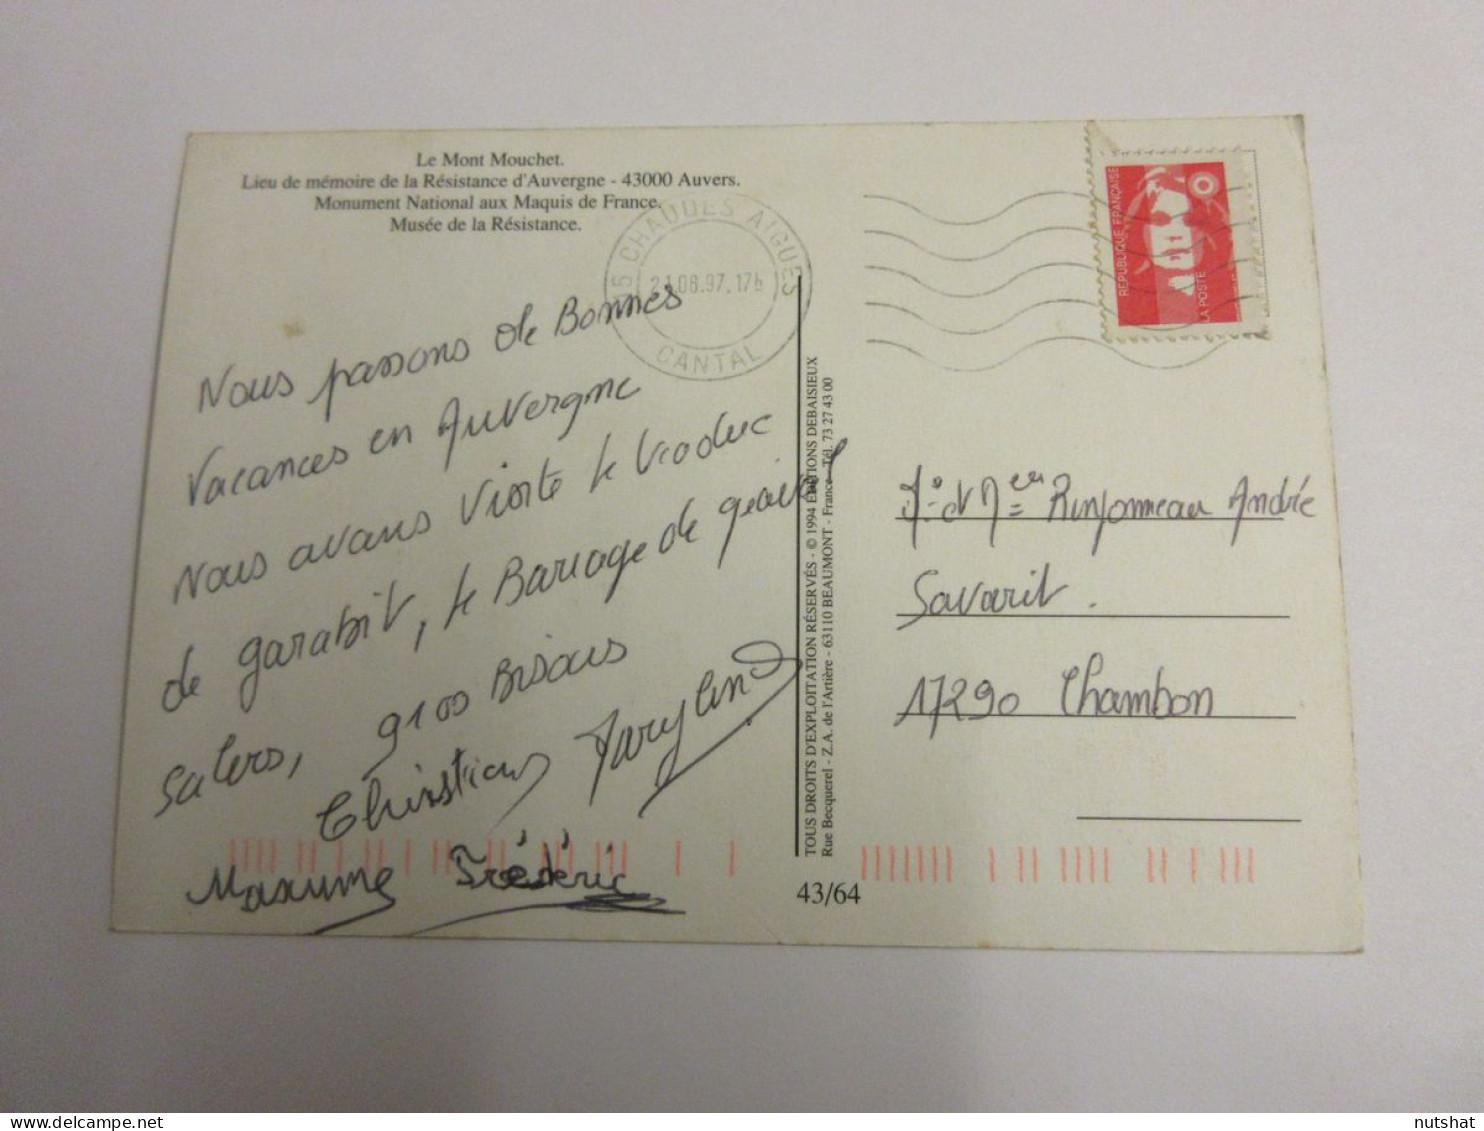 Le Mont Mouchet.
Lieu de mémoire de la Résistance d'Auvergne - 43000 Auvers.
Monument National aux Maquis de France.
Musée de la Résistance.
15 CHAUDES AIGUES
21.08.97.17h
CANTAL
RÉPUBLIQUE FRANÇAISE
LA POSTE
Nous passons de Bonnes
Vacances en Auvergne
Nous avons Visité le Viaduc
de garabit, le Barrage de
Salers, gros Bisous
Christian Marylind
Maxime Frédéric
TOUS DROITS D'EXPLOITATION RÉSERVÉS - © 1994 ÉDITIONS DEBAISIEUX
Rue Becquerel - Z.A. de l'Artière - 63110 BEAUMONT - France - Tél. 73 27 43 00
43/64
André
Savarit.
17290 Chambon
nutshat